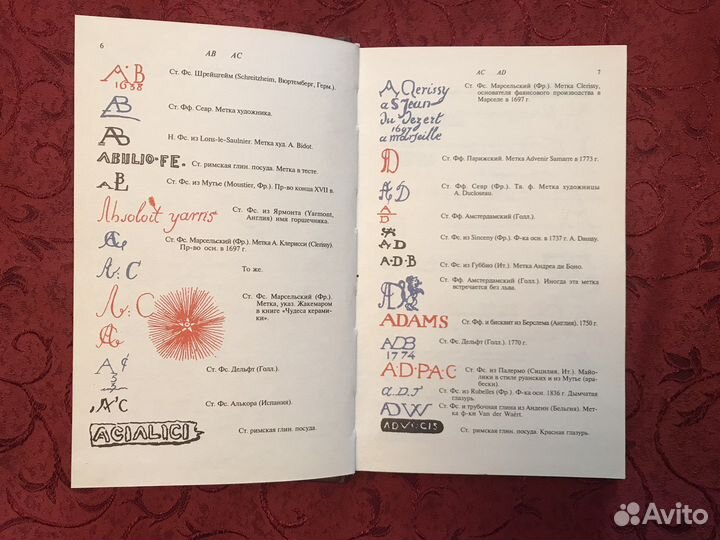 6
AB AC
A·B
1638
Ст. Фс. Шрейцгейм (Schreitzheim, Вюртемберг, Герм.).
AB
Ст. Фф. Севр. Метка художника.
AB
Н. Фс. из Lons-le-Saulnier. Метка худ. A. Bidot.
ABULIO·FE.
Ст. римская глин. посуда. Метка в тесте.
Ст. Фс. из Мутье (Moustier, Фр.). Пр-во конца XVII в.
Absoloit yarns
Ст. Фс. из Ярмонта (Yarmont,
Англия), имя горшечника.
Ст. Фс. Марсельский (Фр.). Метка А. Клерисси (Clerissy).
Пр-во осн. в 1697 г.
A: C
То же.
A: C
Ст. Фс. Марсельский (Фр.).
Метка, указ. Жакемаром
в книге «Чудеса керами-
ки».
A¢
3
Ст. Фс. Дельфт (Голл.).
A'C
Ст. Фс. Алькора (Испания).
ACIALICI
Ст. римская глин. посуда.
AC AD
7
A, Clerissy
a St Jean
du Dezert
1697
a marseille
Ст. Фс. Марсельский (Фр.). Метка Clerissy,
основателя фаянсового производства в
Марселе в 1697 г.
D
Ст. Фф. Парижский. Метка Advenir Samarre в 1773 г.
AD
Ст. Фф. Севр (Фр.). Тв. ф. Метка художницы
A. Duclosnau.
A
D
Ст. Фф. Амстердамский (Голл.).
AD
Ст. Фс. из Sinceny (Фр.). Ф-ка осн. в 1737 г. A. Daussy.
A·D·B
Ст. Фс. из Губбио (Ит.). Метка Андреа де Боно.
AD
Ст. Фф. Амстердамский (Голл.). Иногда эта метка
встречается без льва.
ADAMS
Ст. Фф. и бисквит из Берслема (Англия). 1750 г.
ADB
1774
Ст. Фс. Дельфт (Голл.). 1770 г.
AD·PA·C
Ст. Фс. из Палермо (Сицилия, Ит.). Майо-
лики в стиле руанских и из Мутье (ара-
бески).
a.D.T
Ст. Фс. из Rubelles (Фр.). Ф-ка осн. 1836 г. Дымчатая
глазурь.
ADW
Ст. Фс. и трубочная глина из Анденн (Бельгия). Мет-
ка ф-ки Van der Waërt.
ADVOCIS
Ст. римская глин. посуда. Красная глазурь.
Avito